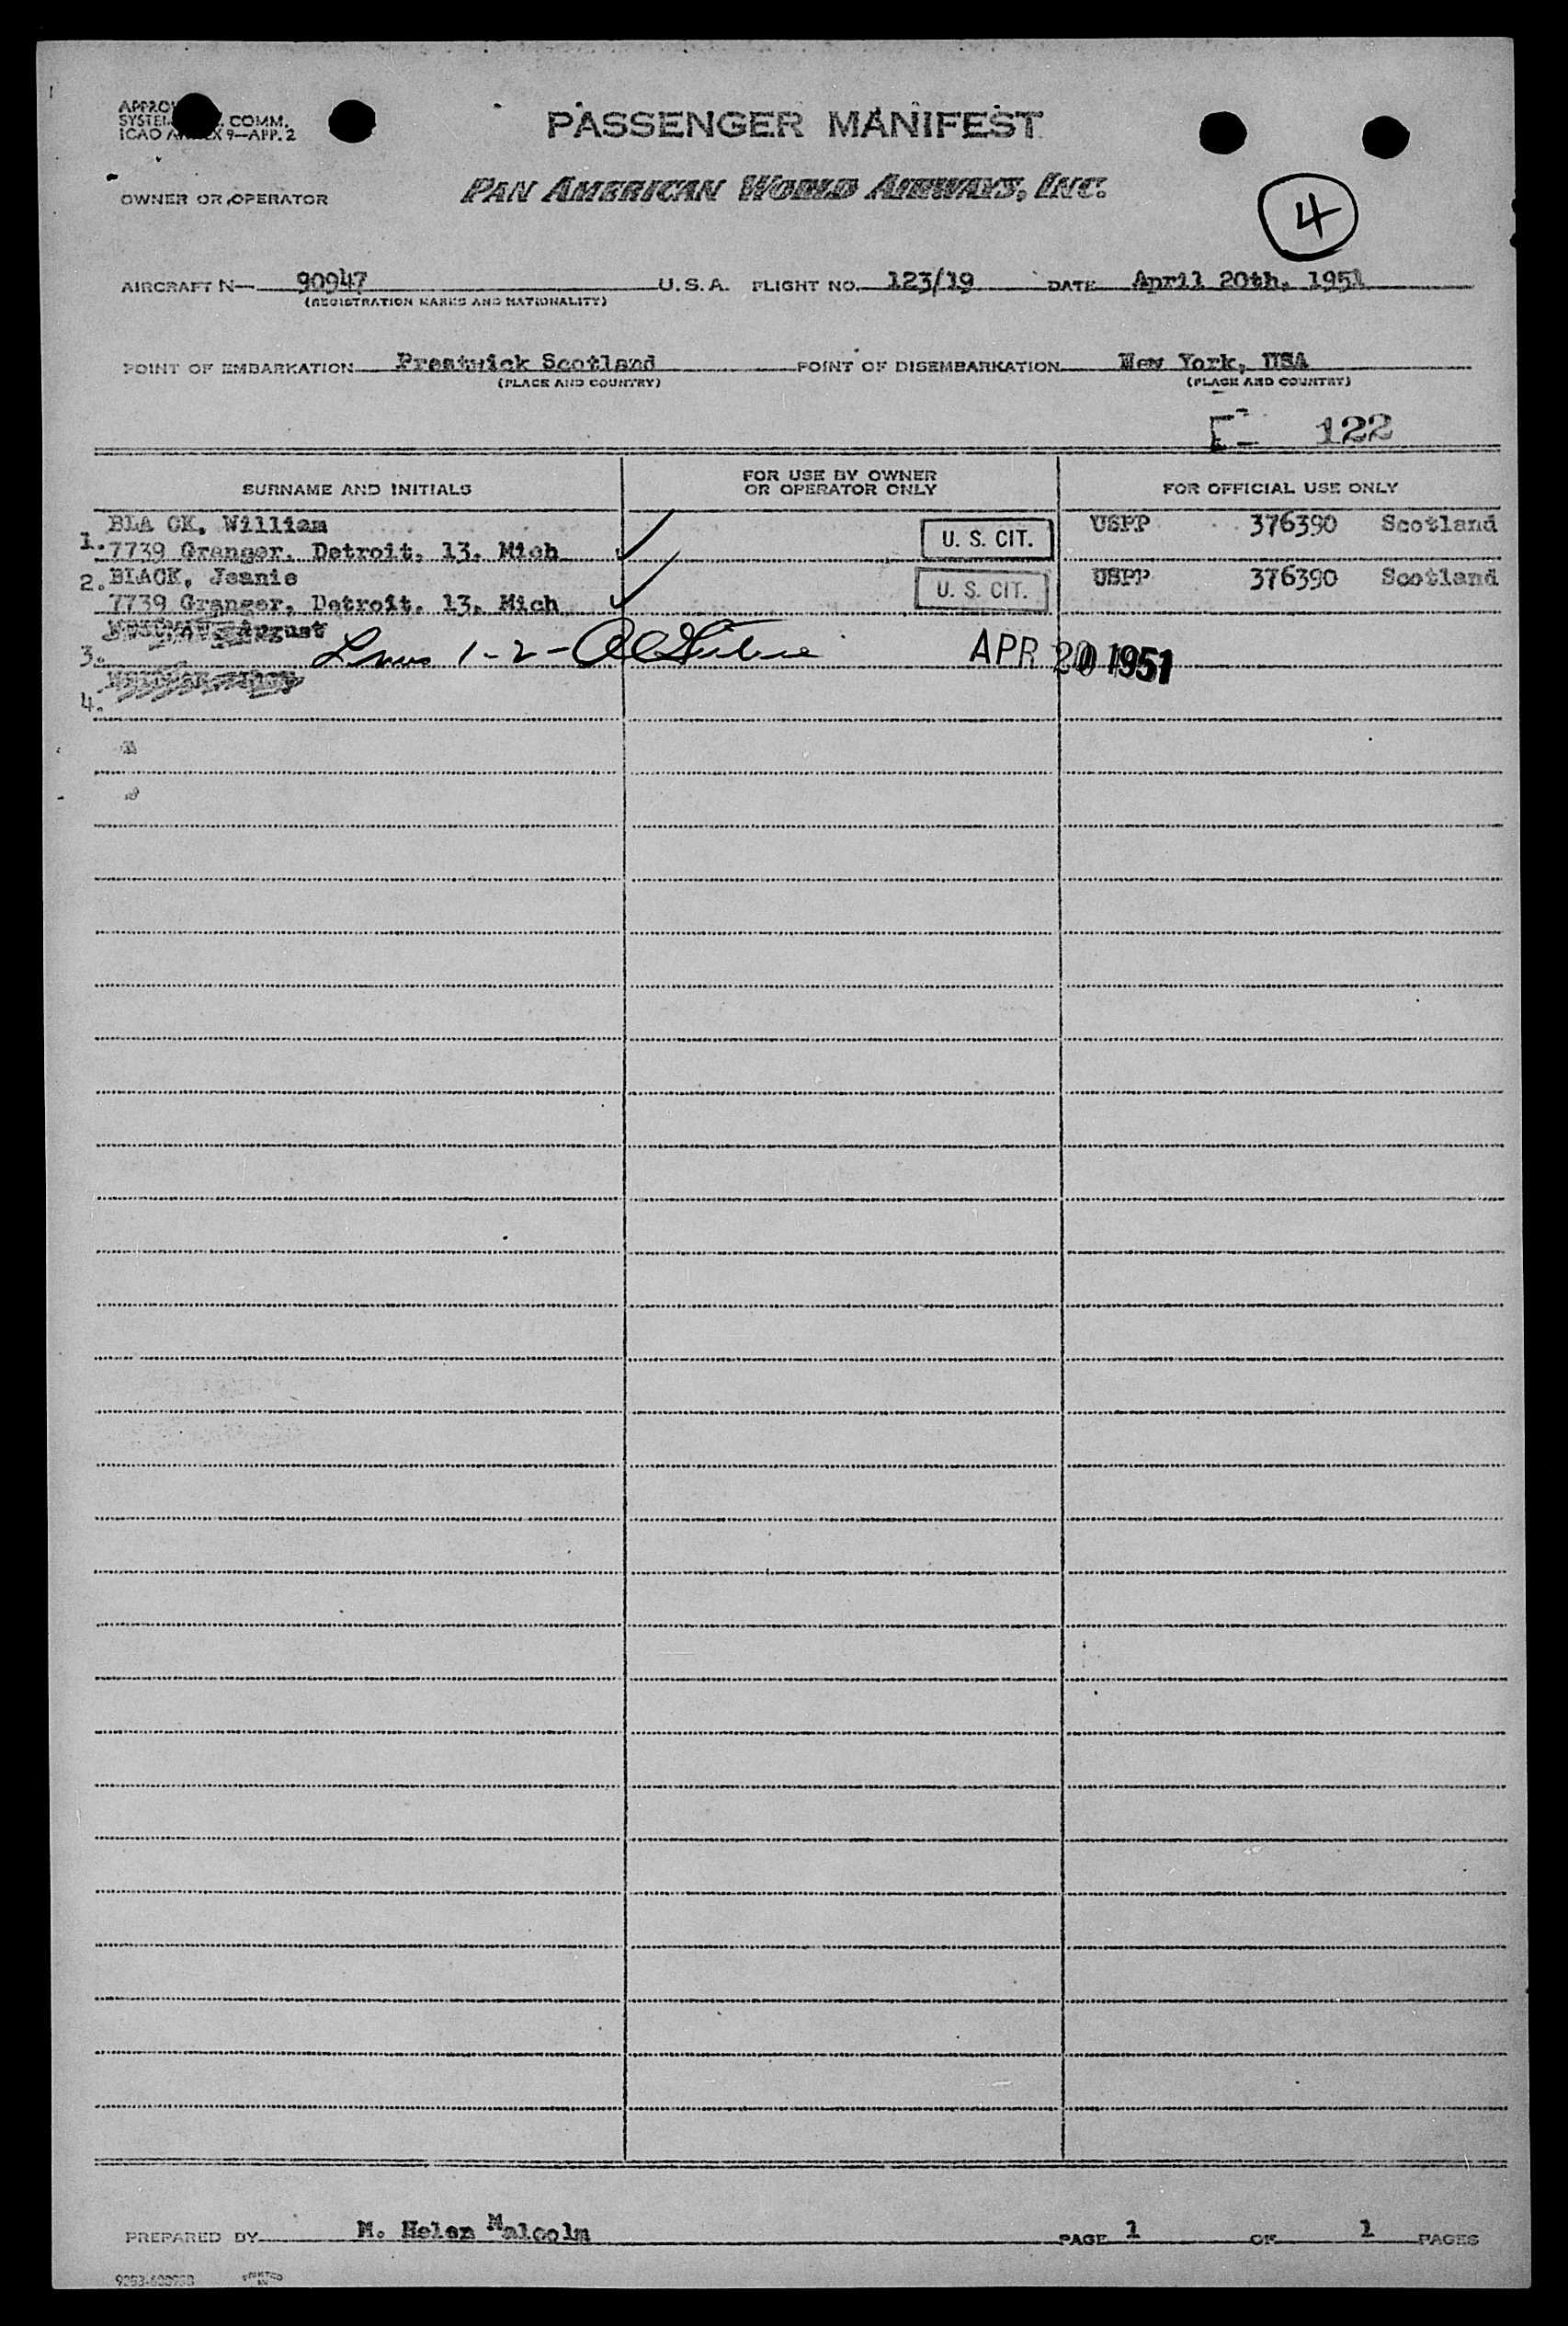 PASSENGER MANIFEST
COMM.
ICAO 9—APP. 2
OWNER OR OPERATOR PAN AMERICAN WORLD AIRWAYS, INC.
4
AIRCRAFT N— 90947 U.S.A. FLIGHT NO. 123/19 DATE April 20th, 1951
(REGISTRATION MARKS AND NATIONALITY)
POINT OF EMBARKATION Prestwick Scotland POINT OF DISEMBARKATION New York, USA
(PLACE AND COUNTRY) (PLACE AND COUNTRY)
122
SURNAME AND INITIALS FOR USE BY OWNER OR OPERATOR ONLY FOR OFFICIAL USE ONLY
BLA CK, William U. S. CIT. USPP 376390 Scotland
1. 7739 Granger, Detroit, 13, Mich
2. BLACK, Jeanie U. S. CIT. USPP 376390 Scotland
7739 Granger, Detroit, 13, Mich
August
3. 1-2- APR 20 1951
4.
PREPARED BY M. Helen Malcolm PAGE 1 OF 1 PAGES
PRINTED